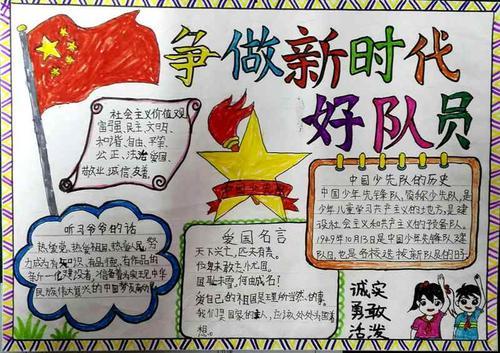 争做新时代
好队员
社会主义价值观
富强、民主、文明、
和谐、自由、平等、
公正、法治、爱国、
敬业、诚信、友善
中国少先队
听习爷爷的话
热爱党、热爱祖国、热爱人民,努
力成为有知识、有品德、有作为的
新一代建设者,
民族伟大复兴的中国梦
爱国名言
天下兴亡,匹夫有责。
位卑未敢忘忧国。
匈奴未灭,何由成名!
爱自己的祖国是理所当然的事。
我们是国家的主人,应该处处为国着
想。
中国少先队的历史
中国少年先锋队,简称少先队,是
少年儿童学习共产主义的地方,是建
设社会主义和共产主义的预备队。
1949年10月13日是中国少年先锋队建
队日,也是各校选拔新队员的时
诚实
勇敢
活泼